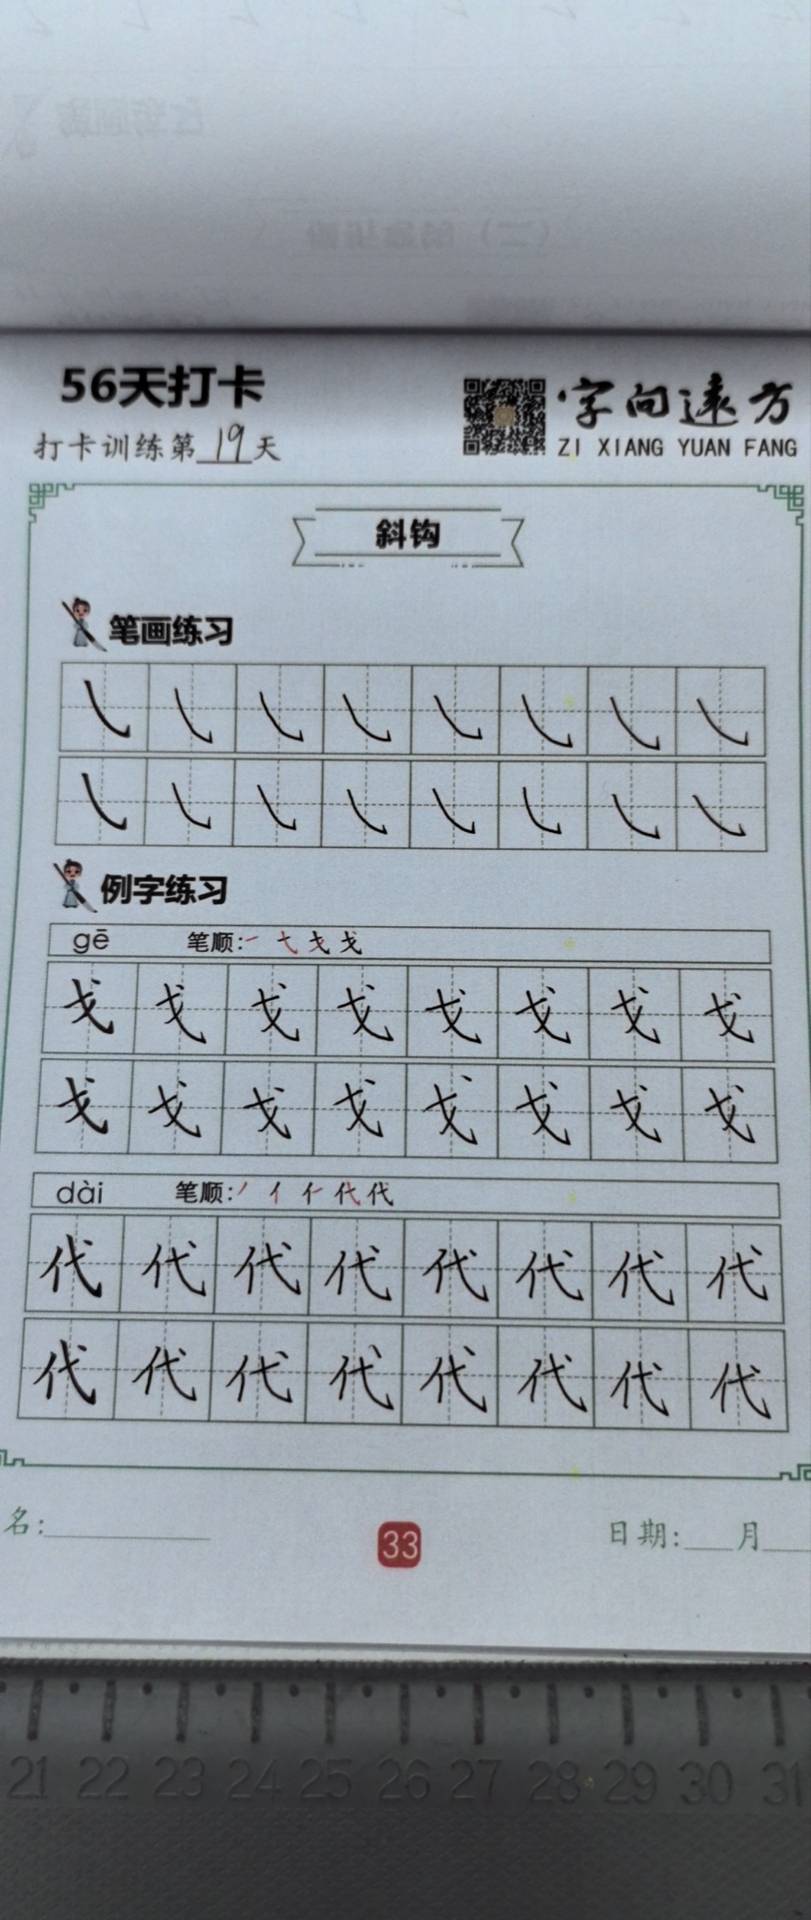 56天打卡
字向远方
打卡训练第19天
ZI XIANG YUAN FANG
斜钩
笔画练习
㇂㇂㇂㇂㇂㇂㇂㇂
㇂㇂㇂㇂㇂㇂㇂㇂
例字练习
gē 笔顺:
戈戈戈戈戈戈戈戈
戈戈戈戈戈戈戈戈
dài 笔顺:
代代代代代代代代
代代代代代代代代
名:
33
日期: 月
21 22 23 24 25 26 27 28 29 30 31